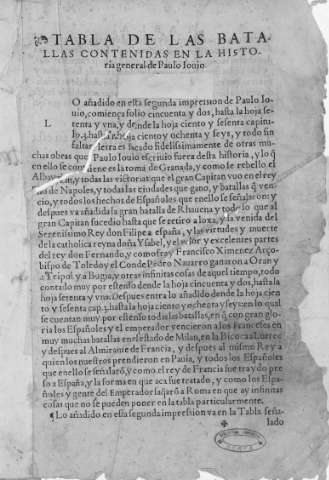 TABLA DE LAS BATA
LLAS CONTENIDAS EN LA HISTO-
ria general de Paulo Iouio
LO añadido en esta segunda impression de Paulo Io-
uio, comiença folio cincuenta y dos, hasta la hoja se-
tenta y vna, y desde la hoja ciento y sesenta capitu-
lo hasta la hoja ciento y ochenta y seys, y todo sin
faltar letra es sacado fidelissimamente de otras mu
chas obras que Paulo Iouio escriuio fuera desta historia, y lo q̃
en ello se contiene es la toma de Granada, y como se rebello el
y todas las victorias que el gran Capitan vuo en el rey
no de Napoles, y todas las ciudades que gano, y batallas q̃ ven-
cio, y todos los hechos de Españoles que en ello se señalaron: y
despues va añadida la gran batalla de Rhauena y todo lo que al
gran Capitan sucedio hasta que se retiro a loxa, y la venida del
Serenissimo Rey don Felipe a españa, y las virtudes y muerte
de la catholica reyna doña Ysabel, y el valor y excelentes partes
del rey don Fernando, y como fray Francisco Ximenez Arço-
bispo de Toledo y el Conde Pedro Nauarro ganaron a Oran y
a Tripol y a Bugia, y otras infinitas cosas de aquel tiempo, todo
contado muy por estenso desde la hoja cincuenta y dos, hasta la
hoja setenta y vna. Despues entra lo añadido desde la hoja cien
to y sesenta cap. hasta la hoja ciento y ochenta y seys en lo qual
se cuentan muy por estenso todas las batallas, en q̃ con gran glo-
ria los Españoles y el emperador vencieron a los Franceses en
muy muchas batallas en el estado de Milan, en la Bicoca
y despues al Almirante de Francia, y despues al mismo Rey a
quien los nuestros prendieron en Pauia, y todos los Españoles
que en ello se señalarõ, y como el rey de Francia fue traydo pre
so a España, y la forma en que aca fue tratado, y como los Espa-
ñoles y gente del Emperador saqueo a Roma en que ay infinitas
cosas que no se pueden poner en la tabla particularmente.
¶ Lo añadido en esta segunda impression va en la Tabla seña-
lado